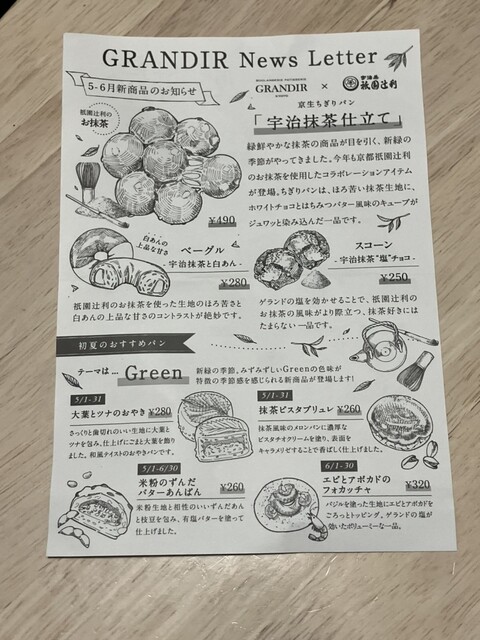 GRANDIR News Letter
5-6月新商品のお知らせ
祇園辻利の
お抹茶
GRANDIR
×
祇園辻利
京生ちぎりパン
「宇治抹茶仕立て」
緑鮮やかな抹茶の商品が目を引く、新緑の
季節がやってきました。今年も京都祇園辻利
のお抹茶を使用したコラボレーションアイテム
が登場。ちぎりパンは、ほろ苦い抹茶生地に、
ホワイトチョコとはちみつバター風味のキューブが
ジュワッと染み込んだ一品です。
¥490
白あんの
上品な甘さ
ベーグル
- 宇治抹茶と白あん -
¥280
祇園辻利のお抹茶を使った生地のほろ苦さと
白あんの上品な甘さのコントラストが絶妙です。
スコーン
- 宇治抹茶"塩"チョコ -
¥250
ゲランドの塩を効かせることで、祇園辻利の
お抹茶の風味がより際立つ、抹茶好きには
たまらない一品です。
初夏のおすすめパン
テーマは… Green
新緑の季節。みずみずしいGreenの色味が
特徴の季節感を感じられる新商品が登場します!
5/1-31
大葉とツナのおやき ¥280
さっくりと歯切れのいい生地に大葉と
ツナを包み、仕上げにごまと大葉を飾り
ました。和風テイストのおやきパンです。
5/1-31
抹茶ピスタブリュレ ¥260
抹茶風味のメロンパンに濃厚な
ピスタチオクリームを塗り、表面を
キャラメリゼすることで香ばしく仕上げました。
5/1-6/30
米粉のずんだ
バターあんぱん
¥260
米粉生地と相性のいいずんだあん
と枝豆を包み、有塩バターを塗って
仕上げました。
6/1-30
エビとアボカドの
フォカッチャ
¥320
バジルを塗った生地にエビとアボカドを
ごろっとトッピング、ゲランドの塩が
効いたボリューミーな一品。